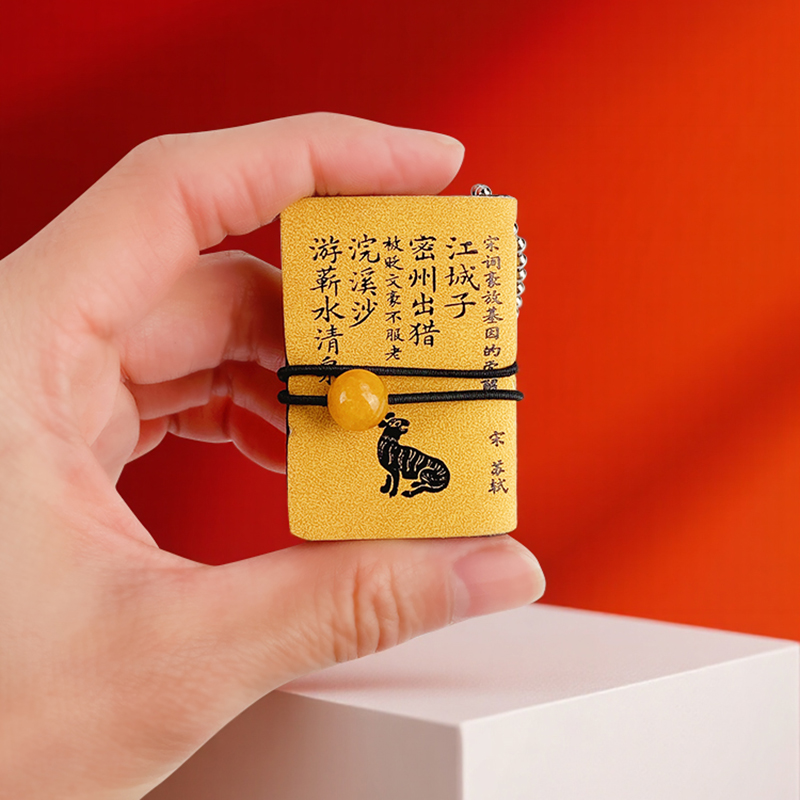 宋词豪放基因的觉醒
宋 苏轼
江城子
密州出猎
被贬文豪不服老
浣溪沙
游蕲水清泉